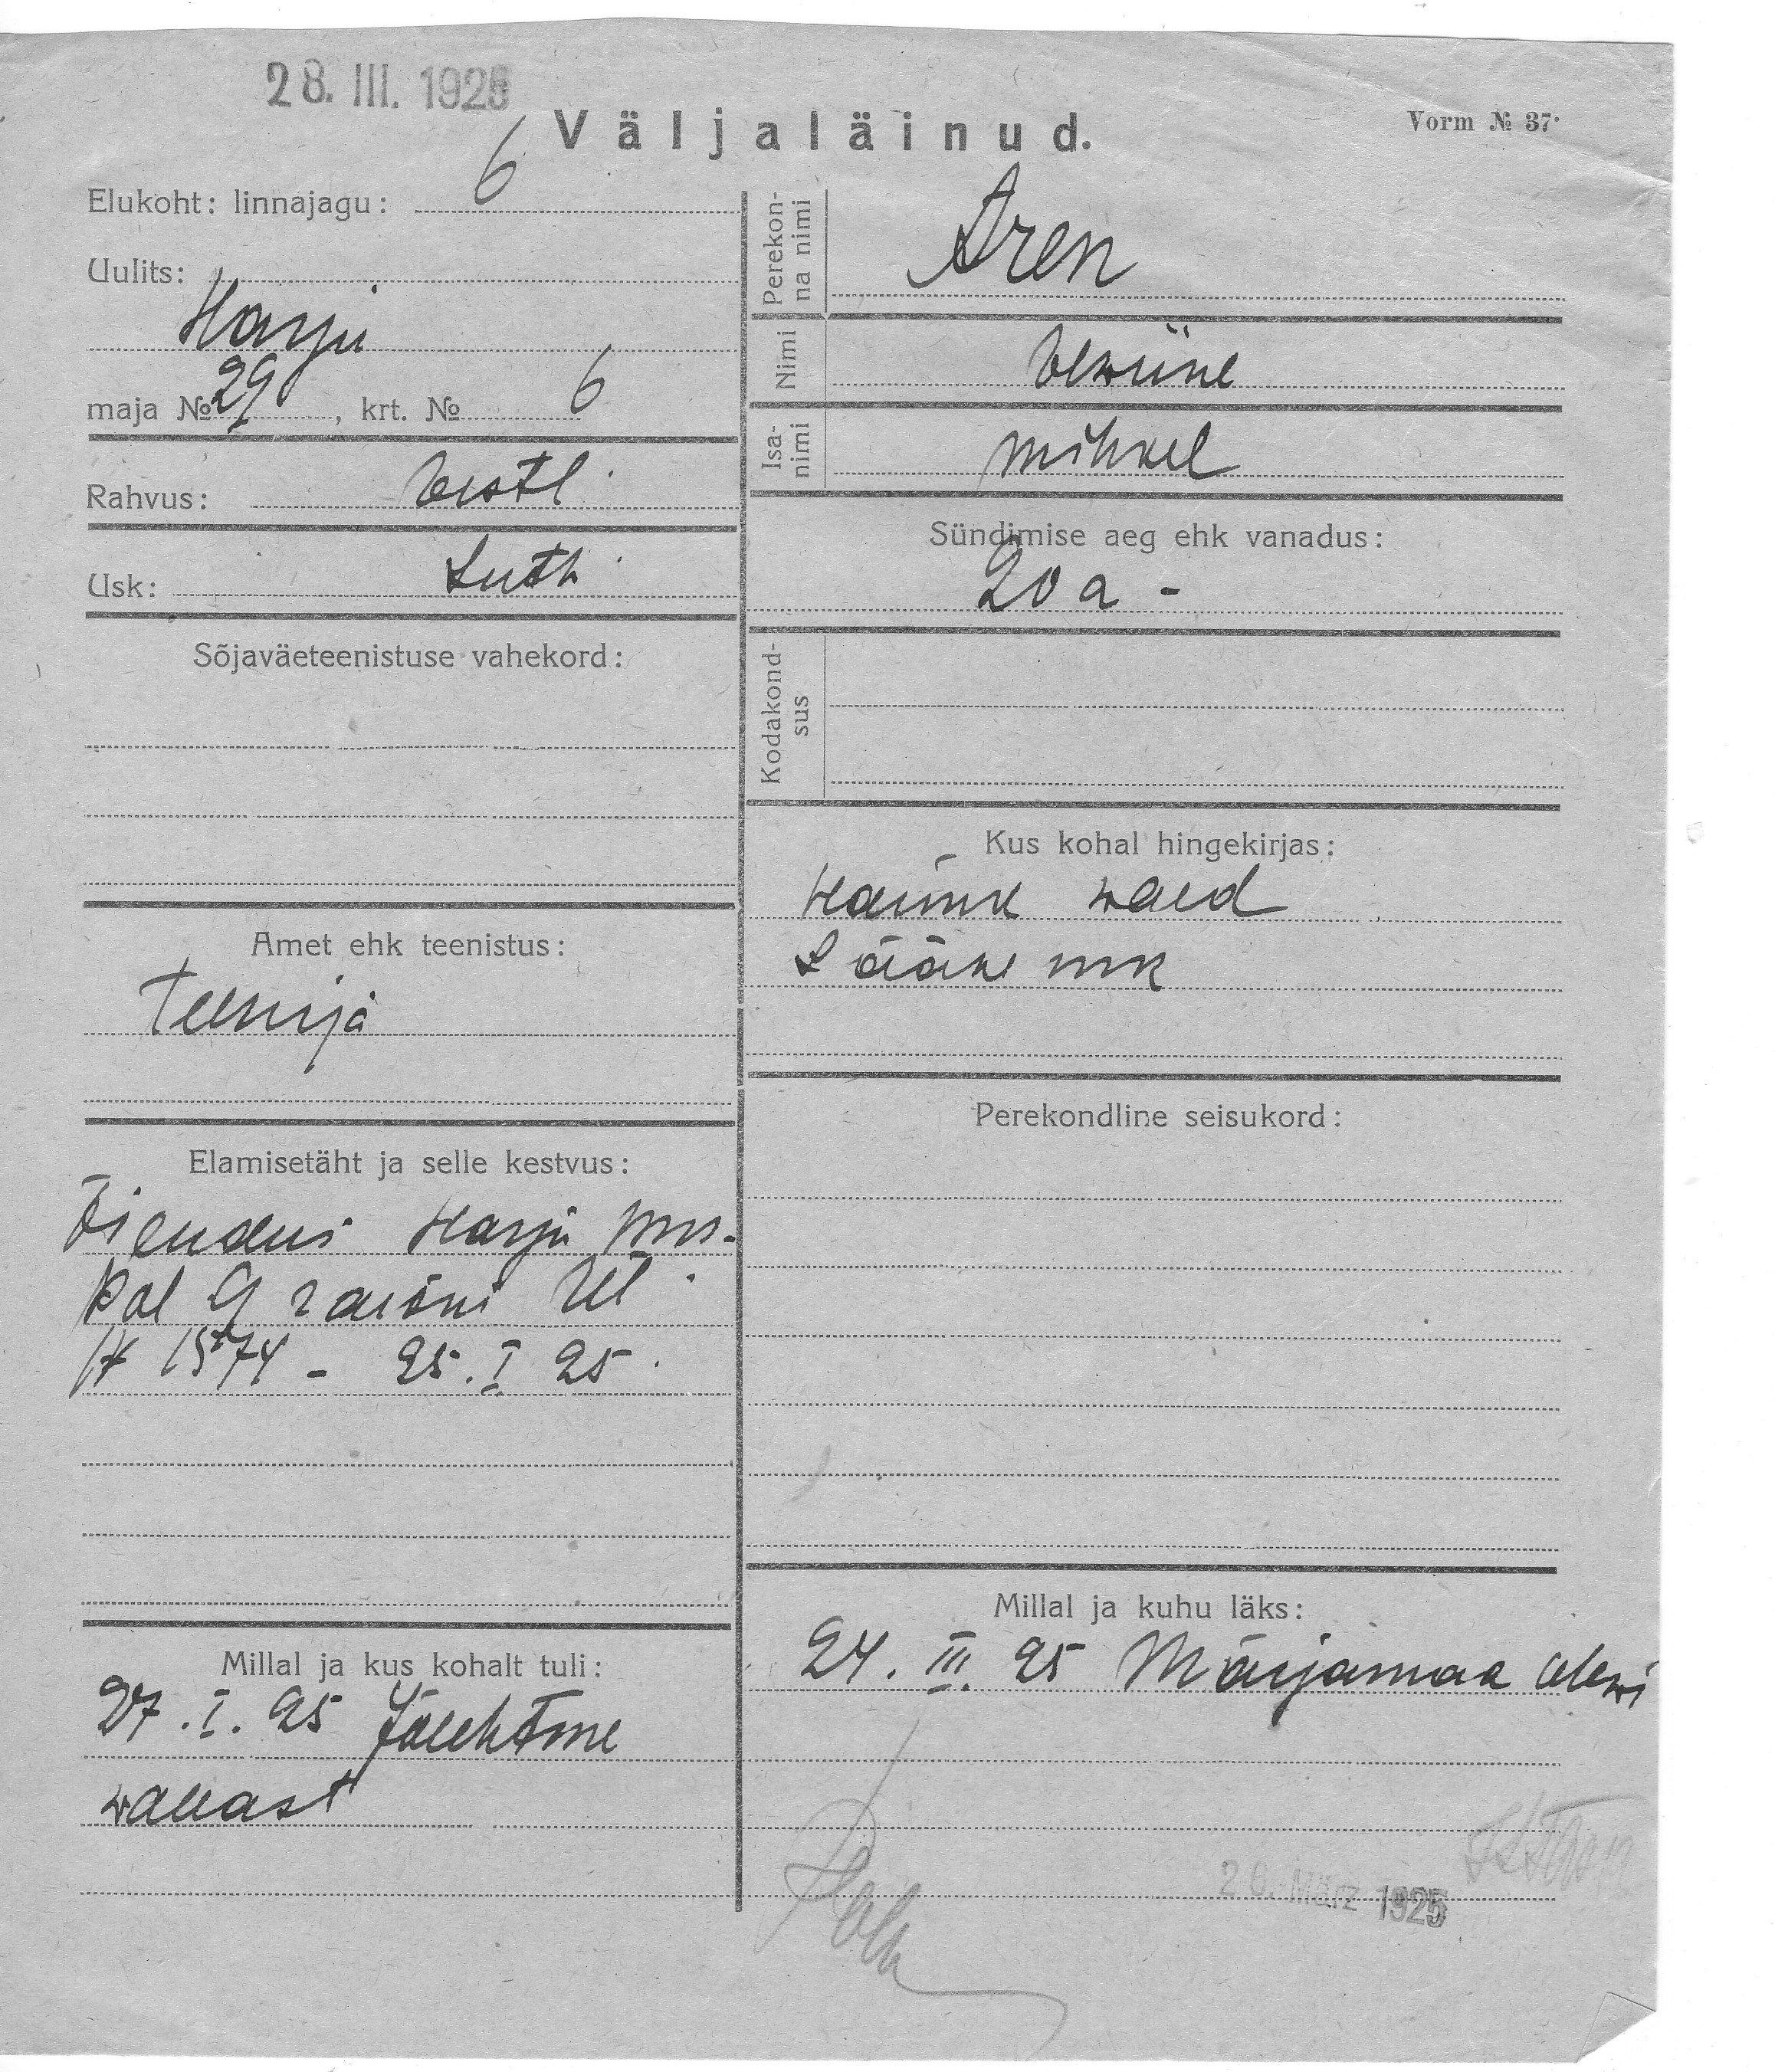 28. III. 1925
Väljaläinud.
Vorm № 37.
Elukoht: linnajagu: 6
Uulits:
Harju
maja № 29, krt. № 6
Rahvus: Eestl.
Usk: Luth.
Sõjaväeteenistuse vahekord:
Amet ehk teenistus:
Teenija
Elamisetäht ja selle kestvus:
Õiendus Harju mn.
Pol 9 raioni Ül.
№ 1574 - 25. I 25.
Millal ja kus kohalt tuli:
27. I. 25 Jõelehtme
wallast
Perekonna nimi
Aren
Nimi
Isanimi
Mihkel
Sündimise aeg ehk vanadus:
20 a -
Kodakondsus
Kus kohal hingekirjas:
wald
Lääne mk
Perekondline seisukord:
Millal ja kuhu läks:
24. III. 25 Märjamaa alewi
26. März 1925